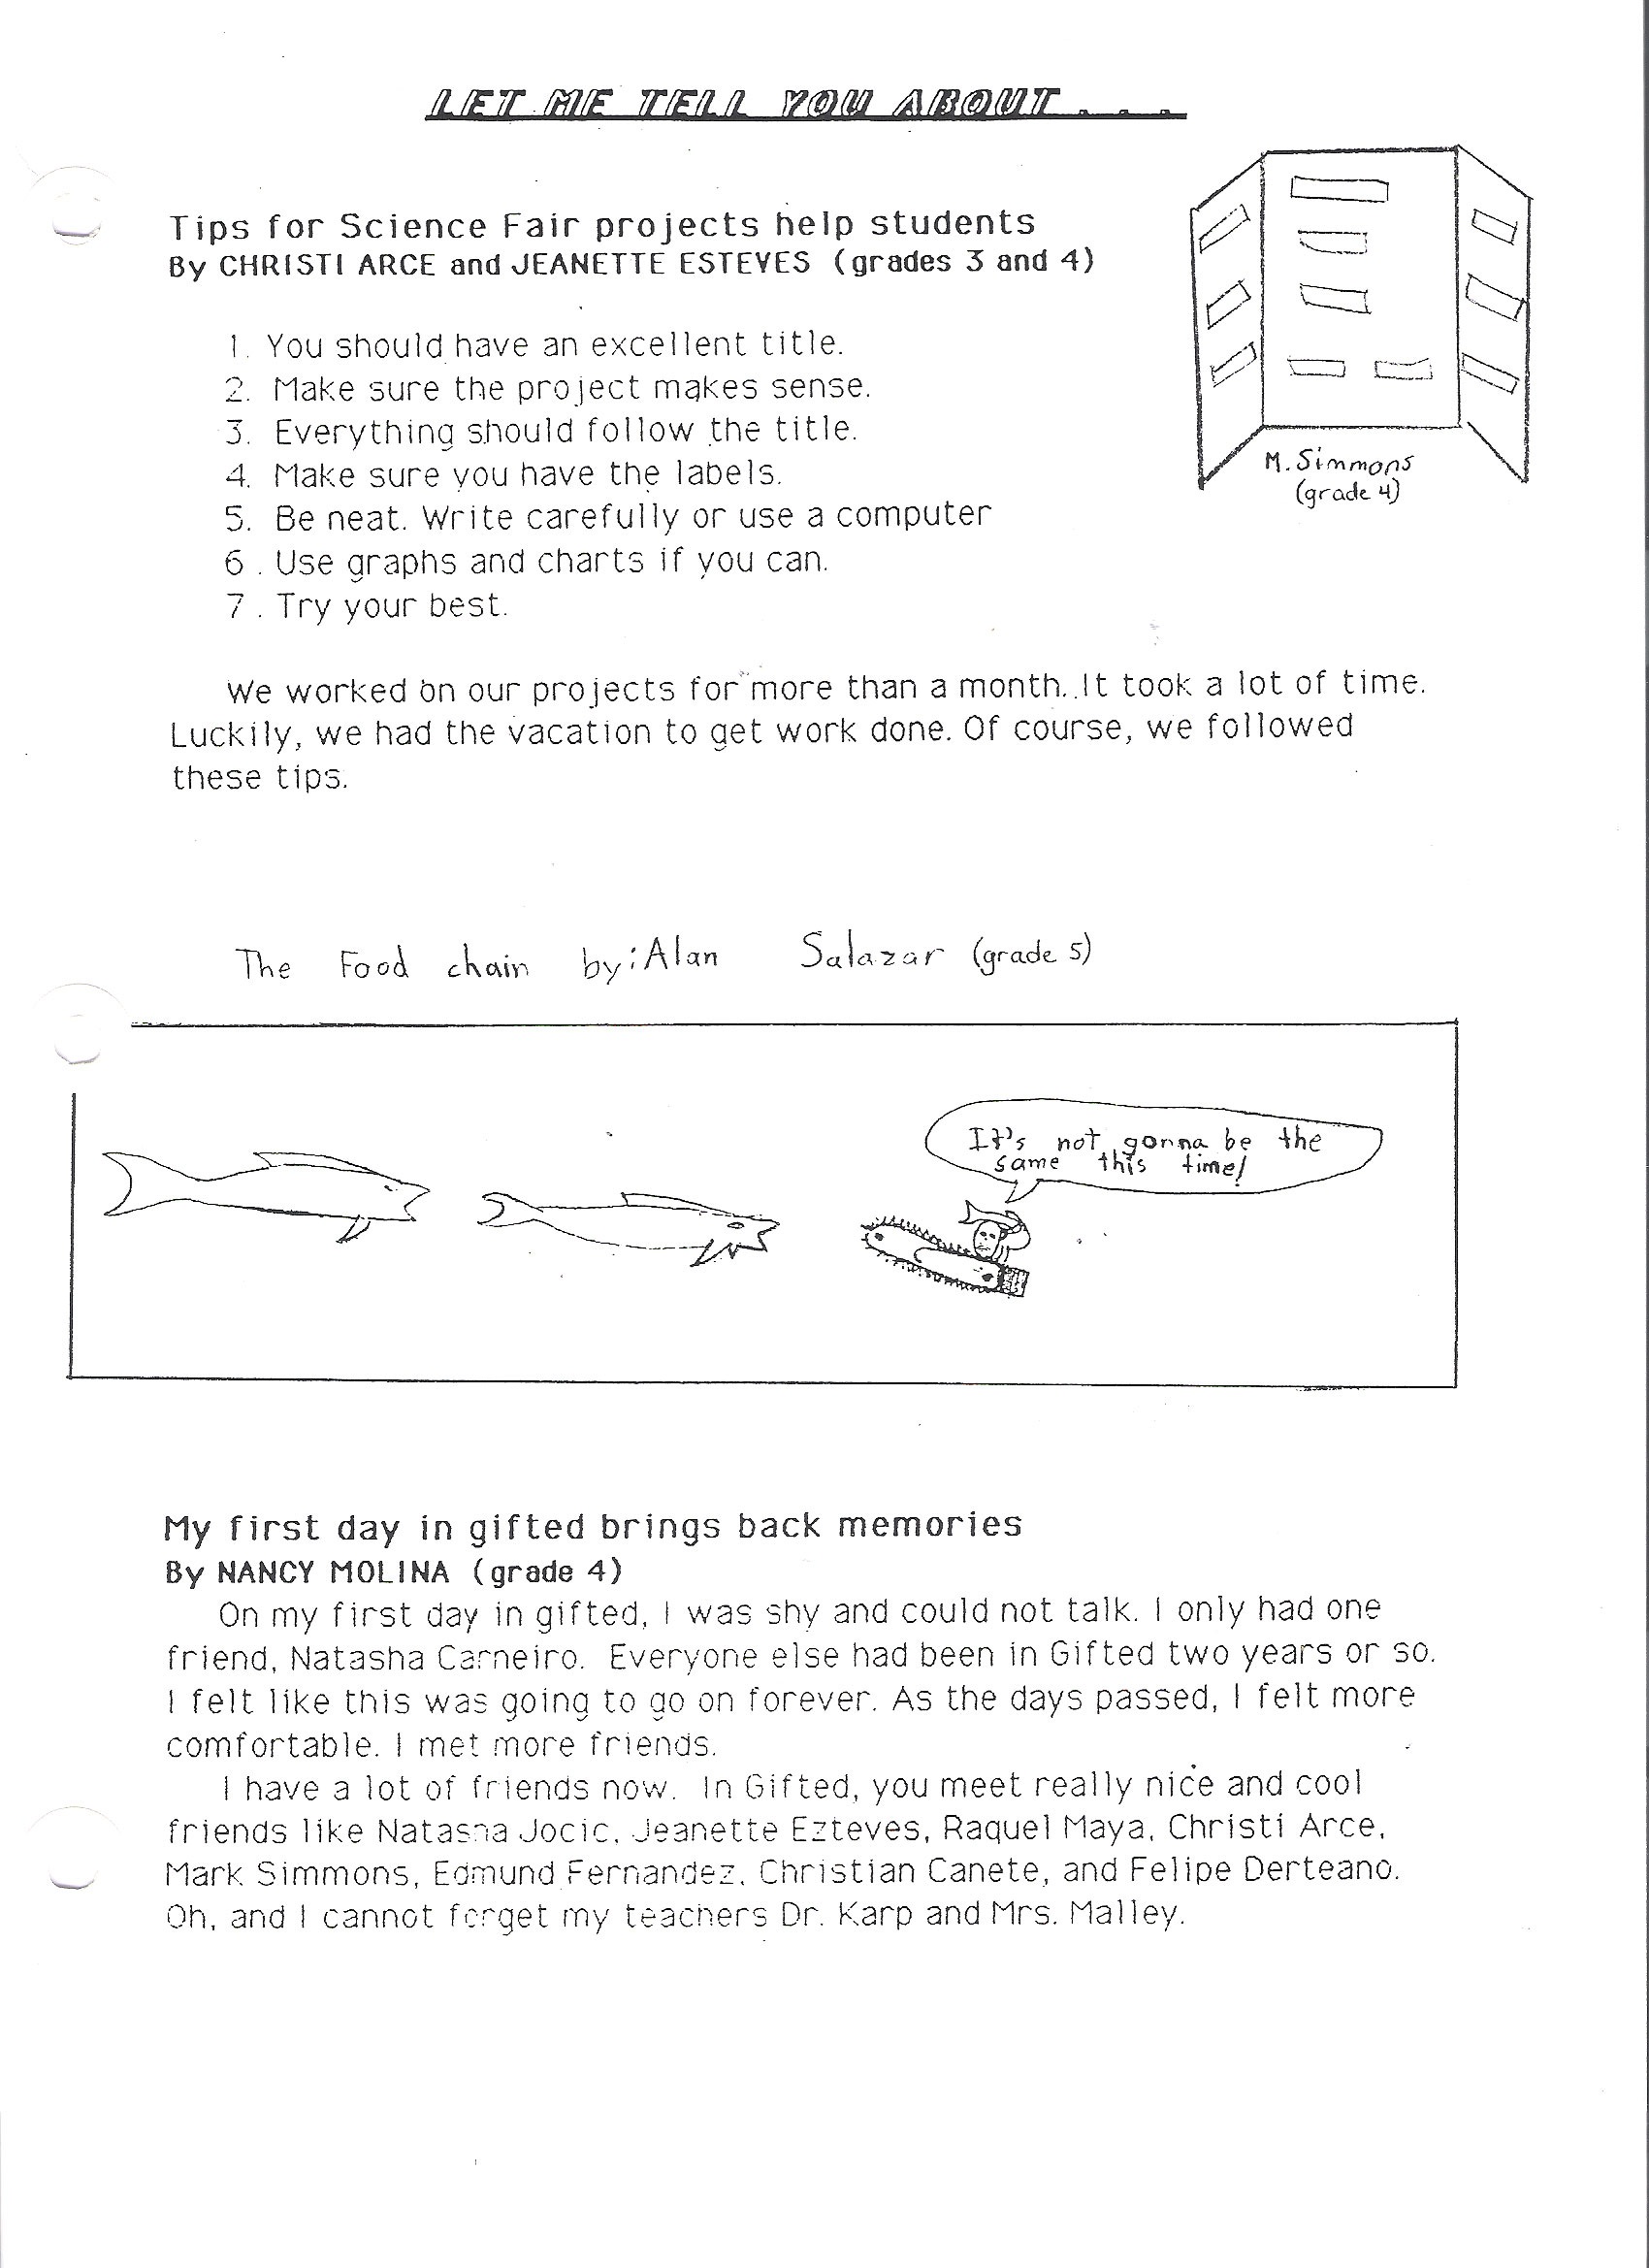 LET ME TELL YOU ABOUT . . .
Tips for Science Fair projects help students
By CHRISTI ARCE and JEANETTE ESTEVES (grades 3 and 4)
1. You should have an excellent title.
2. Make sure the project makes sense.
3. Everything should follow the title.
4. Make sure you have the labels.
5. Be neat. Write carefully or use a computer
6 . Use graphs and charts if you can.
7 . Try your best.
M. Simmons
(grade 4)
We worked on our projects for more than a month. It took a lot of time.
Luckily, we had the vacation to get work done. Of course, we followed
these tips.
The Food chain by: Alan Salazar (grade 5)
It's not gonna be the
same this time!
My first day in gifted brings back memories
By NANCY MOLINA (grade 4)
On my first day in gifted, I was shy and could not talk. I only had one
friend, Natasha Carneiro. Everyone else had been in Gifted two years or so.
I felt like this was going to go on forever. As the days passed, I felt more
comfortable. I met more friends.
I have a lot of friends now. In Gifted, you meet really nice and cool
friends like Natasha Jocic, Jeanette Ezteves, Raquel Maya, Christi Arce,
Mark Simmons, Edmund Fernandez, Christian Canete, and Felipe Derteano.
Oh, and I cannot forget my teachers Dr. Karp and Mrs. Malley.